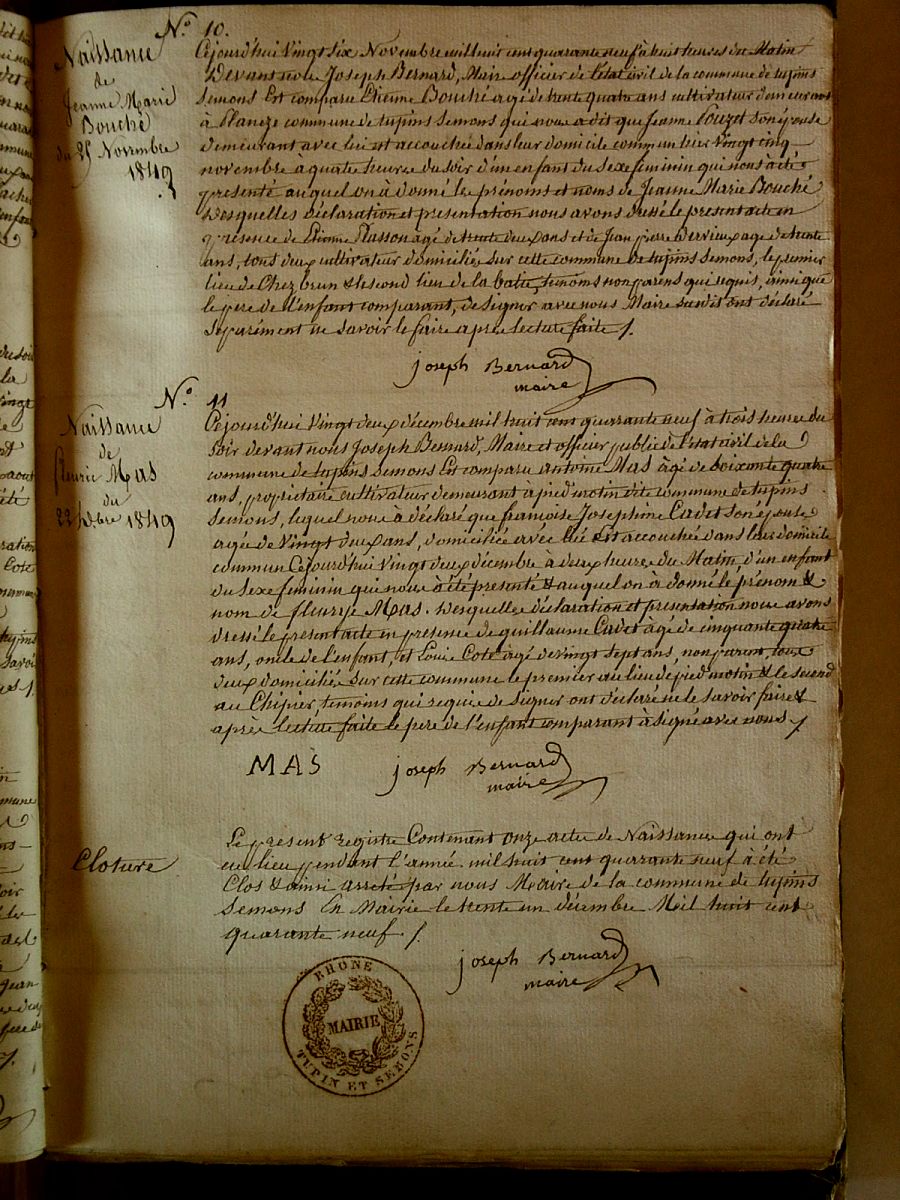 N.º 10.
Naissance
de
Jeanne Marie
Bouché
du 25 Novembre
1849
Cejourd'hui Vingt six Novembre mil huit cent quarante neuf à huit heures du Matin
Devant nous Joseph Bernard, Maire officier de l'état civil de la commune de tupins
Semons Est comparu Etienne Bouché agé de trente quatre ans cultivateur demeurant
à Planeze commune de tupins Semons qui nous a dit que Jeanne Couzet son épouse
demeurant avec lui est accouchée dans leur domicile commun hier Vingt cinq
novembre à quatre heures du soir d'un enfant du sexe feminin qui nous à été
présenté auquel on à donné les prénoms et noms de Jeanne Marie Bouché
Desquelles déclaration et présentation nous avons dressé le present acte en
présence de Etienne Plasson agé de trente deux ans et de Jean pierre Dervieux agé de trente
ans, tous deux cultivateur domiciliés sur cette commune de tupins Semons, le premier
lieu de Chez brun & le second lieu de la batie, temoins non parens qui requis, ainsi que
le pere de l'enfant comparant, de signer avec nous Maire susdit ont déclaré
séparément ne savoir le faire après lecture faite /.
joseph Bernard
maire
N.º 11
Naissance
de
fleurie Mas
du
22 Xbre 1849
Cejourd'hui Vingt deux décembre mil huit cent quarante neuf à trois heures du
Soir devant nous Joseph Bernard, Maire et officier public de l'état civil de la
commune de tupins Semons Est comparu antoine Mas agé de Soixante quatre
ans, propriétaire cultivateur demeurant à pied motin dite commune de tupins
Semons, lequel nous à déclaré que françoise Josephine Cadet son épouse
agée de Vingt deux ans, domiciliée avec lui Est accouchée dans leur domicile
commun Cejourd'hui Vingt deux décembre à deux heures du Matin d'un enfant
du Sexe feminin qui nous à été présenté & auquel on à donné le prénom &
nom de fleurye Mas. Desquelles déclaration et présentation nous avons
dressé le présent acte en présence de guillaume Cadet agé de cinquante quatre
ans, oncle de l'enfant, et Louis Cote agé de vingt sept ans, non parent, tous
deux domiciliés sur cette commune le premier au lieu de pied motin & le second
au Chipier, temoins qui requis de signer ont déclaré ne le savoir faire &
après lecture faite le pere de l'enfant comparant à signé avec nous /
MAS
joseph Bernard
maire
Cloture
Le présent registre Contenant onze actes de Naissances qui ont
eu lieu pendant l'année mil huit cent quarante neuf à été
Clos & ainsi arreté par nous Maire de la commune de tupins
Semons En Mairie le trente un décembre Mil huit cent
quarante neuf /.
joseph Bernard
maire
RHÔNE
MAIRIE
TUPIN ET SEMONS